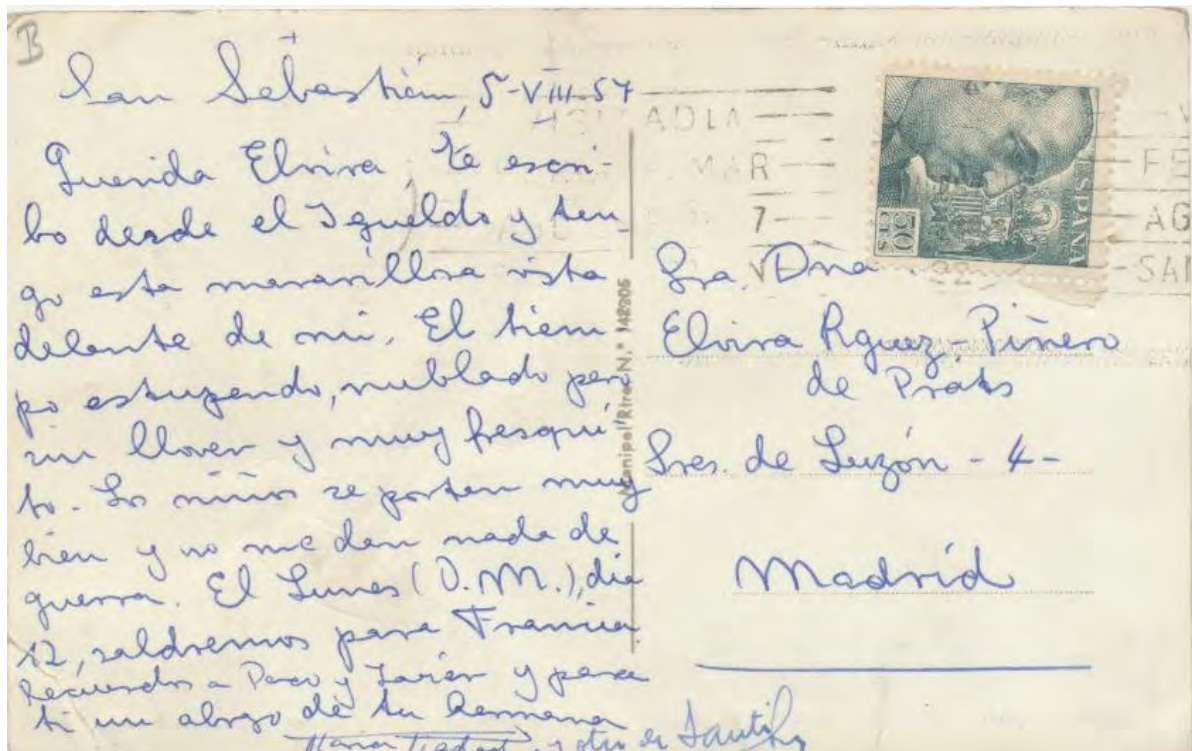 B
San Sebastián, 5-VIII-57
Querida Elvira, te escri-
bo desde el Igueldo y ten-
go esta maravillosa vista
delante de mi. El tiem
po estupendo, nublado pero
sin llover y muy fresqui
to. Los niños se portan muy
bien y no me dan nada de
guerra. El Lunes (D.M.), día
12, saldremos para Francia
Recuerdos a Paco y Javier y para
ti un abrazo de tu hermana
María Piedad y otro de Santi
Manipel Rtro. N.º 142205
ADIA
MAR
7
FE
AG
SAN
50 CTS
ESPAÑA
Sra. Dña
Elvira Rguez-Piñero
de Prats
Sres. de Luzón - 4 -
Madrid